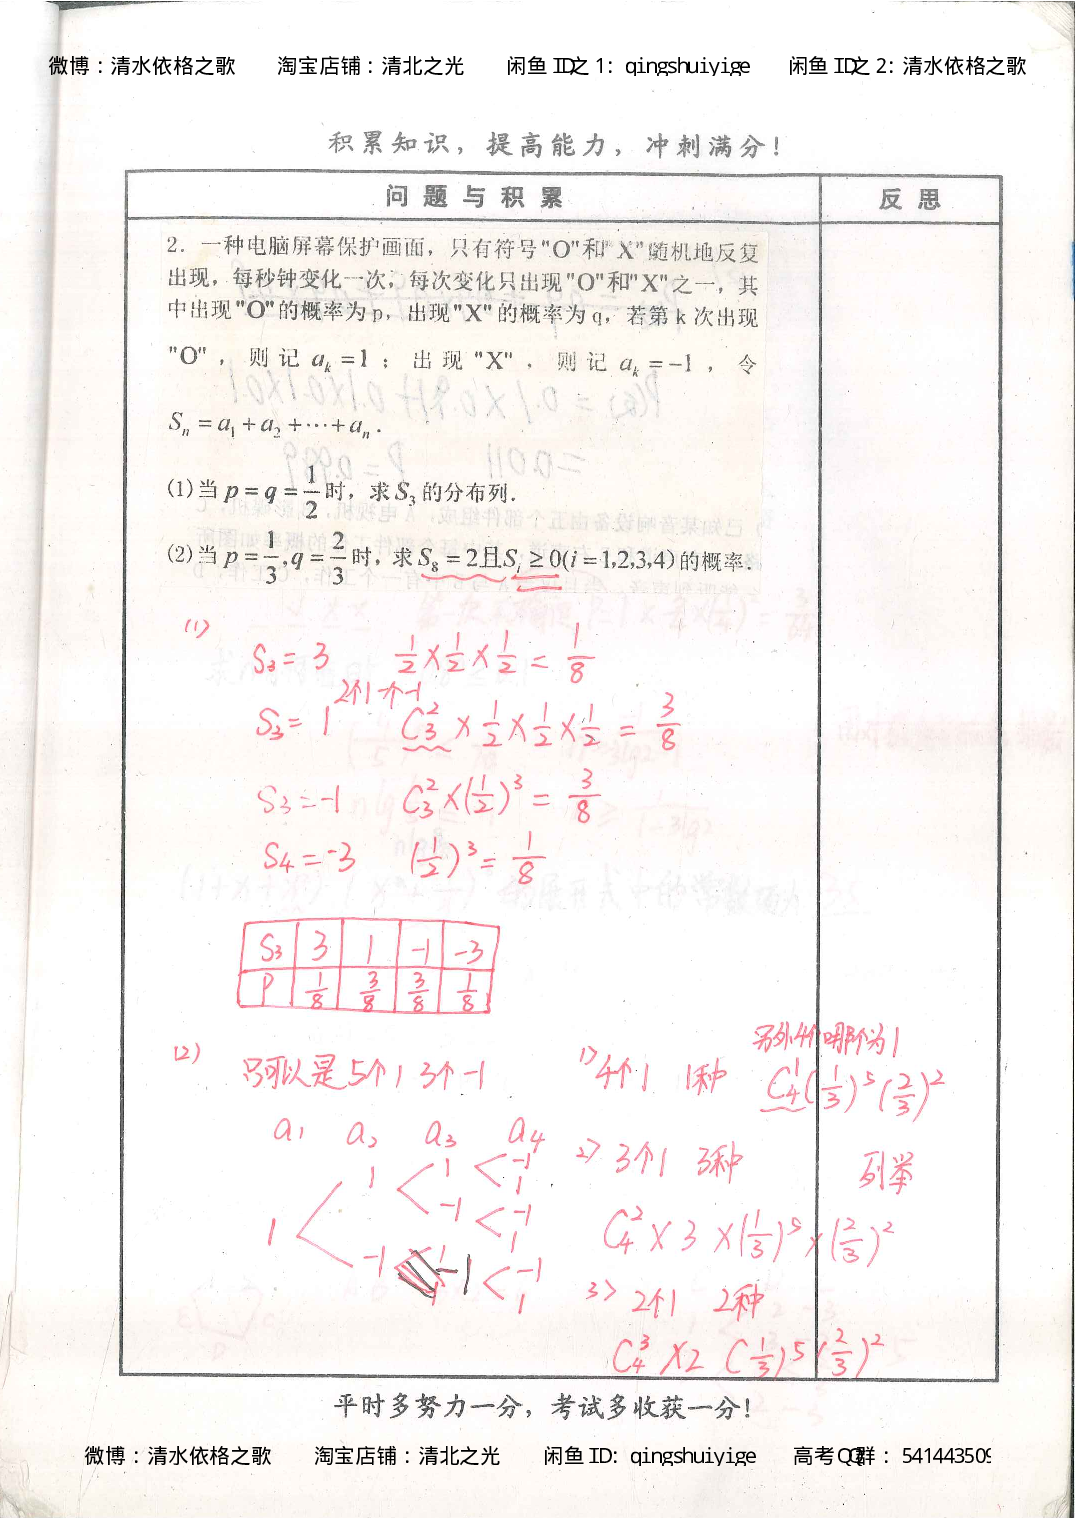 微博：清水依格之歌 淘宝店铺：清北之光 闲鱼 ID之 1: qingshuiyige 闲鱼 ID之 2: 清水依格之歌
积累知识，提高能力，冲刺满分！
问题与积累 反思
2. 一种电脑屏幕保护画面，只有符号"O"和"X"随机地反复
出现，每秒钟变化一次，每次变化只出现"O"和"X"之一，其
中出现"O"的概率为p，出现"X"的概率为q，若第k次出现
"O"，则记 aₖ=1；出现"X"，则记 aₖ=-1，令
Sₙ=a₁+a₂+···+aₙ.
(1)当 p=q=1/2 时，求S₃的分布列.
(2)当 p=1/3,q=2/3 时，求S₈=2且Sᵢ≥0(i=1,2,3,4)的概率.
(1)
S₃=3 1/2×1/2×1/2=1/8
2个1一个-1
S₃=1 C₃²×1/2×1/2×1/2=3/8
S₃=-1 C₃²×(1/2)³=3/8
S₄=-3 (1/2)³=1/8
S₃ 3 1 -1 -3
P 1/8 3/8 3/8 1/8
(2) 只可以是5个1 3个-1
a₁ a₂ a₃ a₄
1 1 1 -1
1
-1 -1
1
-1 1 -1
1
1) 4个1 1种 C₄¹(1/3)⁵(2/3)²
另外4个哪个为1
2) 3个1 3种 列举
C₄²×3×(1/3)⁵×(2/3)²
3) 2个1 2种
C₄³×2(1/3)⁵(2/3)²
平时多努力一分，考试多收获一分！
微博：清水依格之歌 淘宝店铺：清北之光 闲鱼 ID: qingshuiyige 高考QQ群：541443509